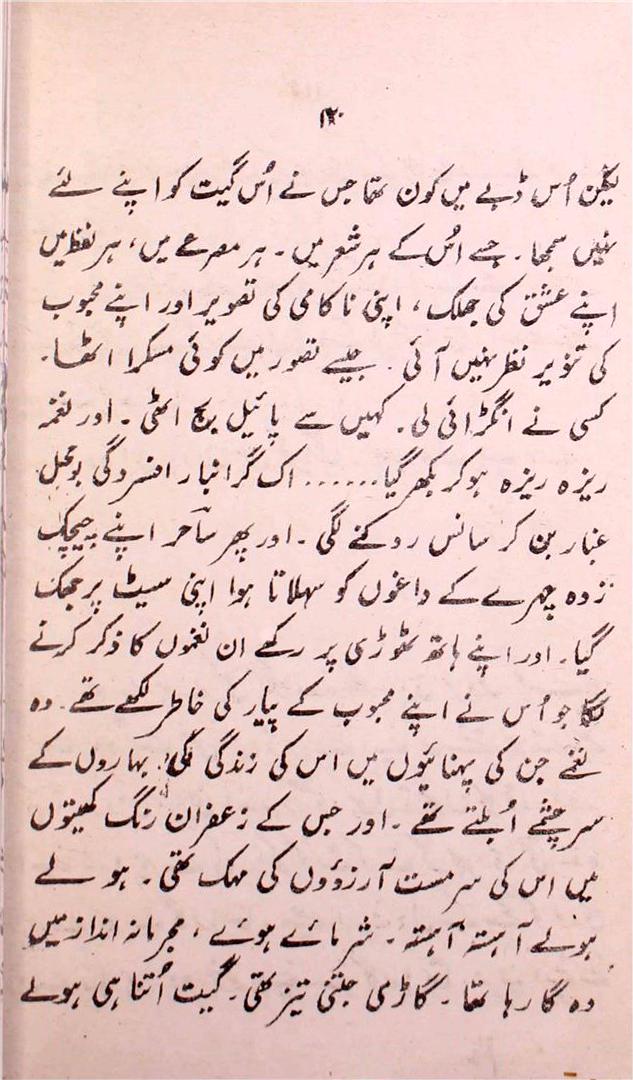 ۱۲۰
لیکن اُس ڈبے میں کون تھا جس نے اُس گیت کو اپنے لئے
نہیں سمجھا۔ جسے اُس کے ہر شعر میں۔ ہر مصرعے میں، ہر لفظ میں
اپنے عشق کی جھلک، اپنی ناکامی کی تصویر اور اپنے محبوب
کی تنویر نظر نہیں آئی۔ جیسے تصور میں کوئی مسکرا اٹھا۔
کسی نے انگڑائی لی۔ کہیں سے پائیل بج اٹھی۔ اور نغمہ
ریزہ ریزہ ہو کر بکھر گیا...... اک گرانبار افسردگی بوجھل
غبار بن کر سانس روکنے لگی۔ اور پھر ساحر اپنے چیچک
زدہ چہرے کے داغوں کو سہلاتا ہوا اپنی سیٹ پر جھک
گیا۔ اور اپنے ہاتھ ٹھوڑی پر رکھے ان نغموں کا ذکر کرنے
لگا جو اُس نے اپنے محبوب کے پیار کی خاطر لکھے تھے۔ وہ
نغمے جن کی پہنائیوں میں اس کی زندگی کی بہاروں کے
سرچشمے اُبلتے تھے۔ اور جس کے زعفران رنگ کھیتوں
میں اس کی سرمست آرزوؤں کی مہک تھی۔ ہولے
ہولے آہستہ آہستہ۔ شرمائے ہوئے، مجرمانہ انداز میں
وہ گا رہا تھا۔ گاڑی جتنی تیز تھی۔ گیت اُتنا ہی ہولے